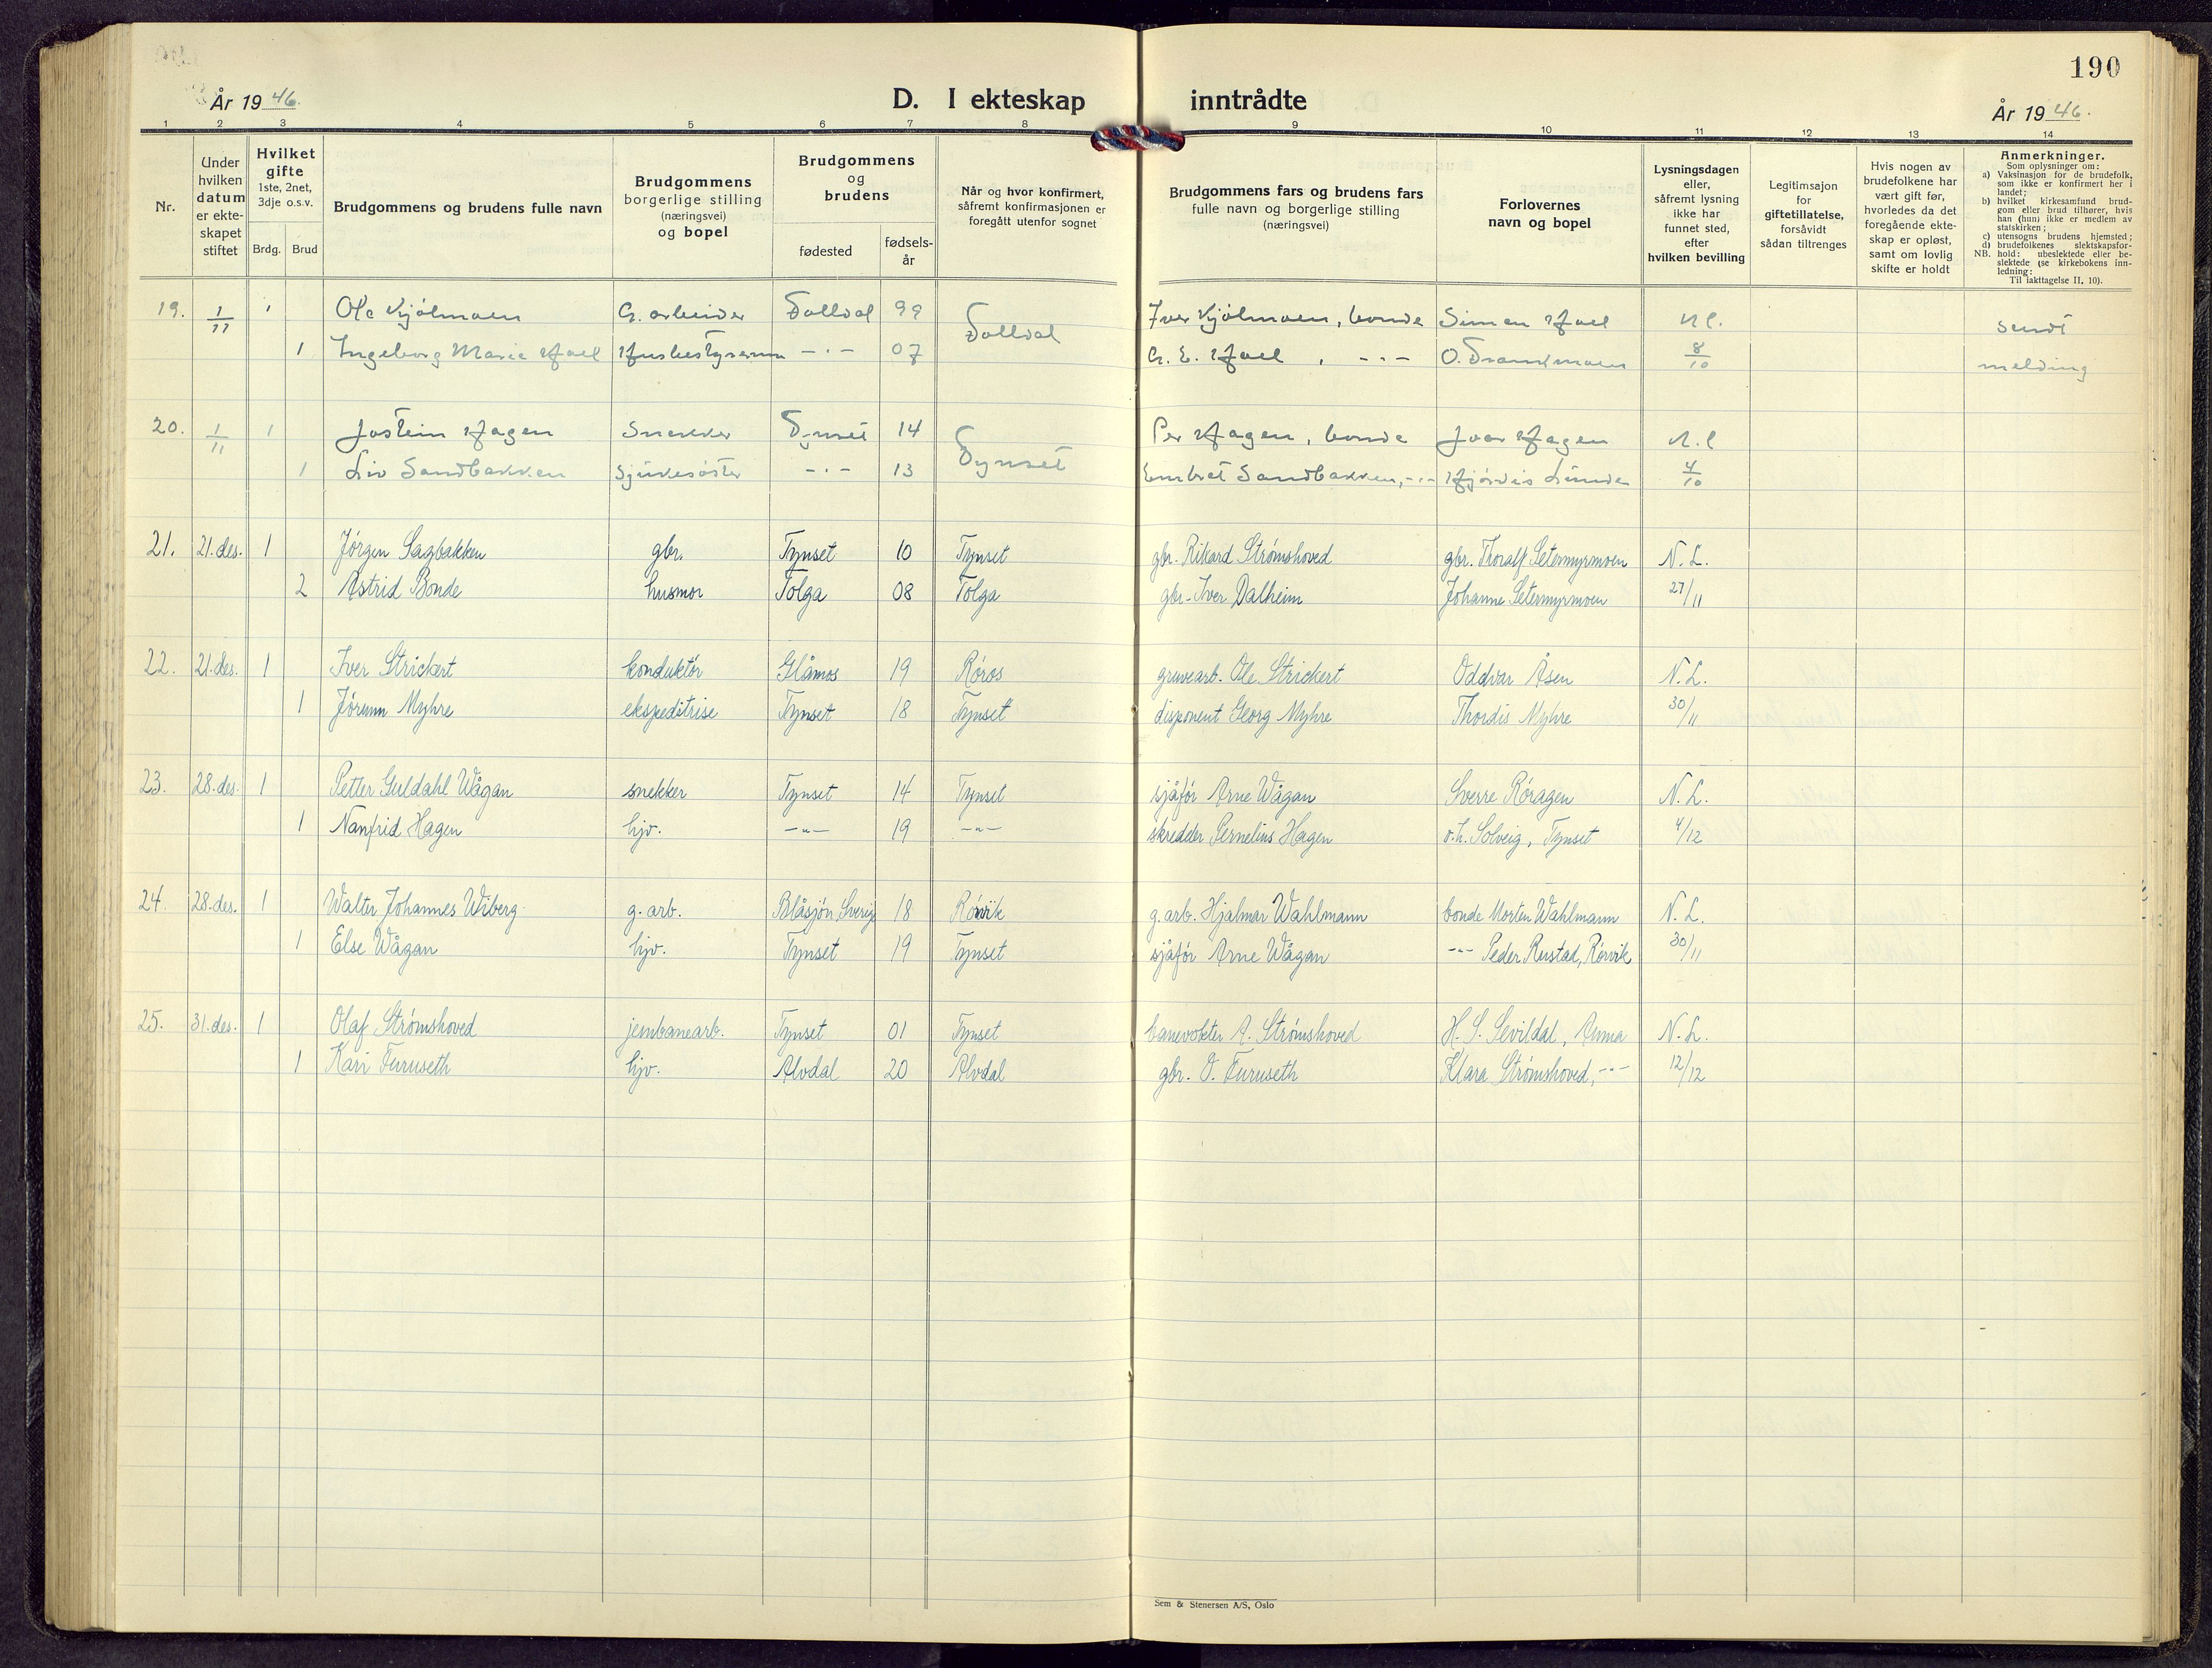 190
År 19 46.
D. I ekteskap inntrådte
År 19 46.
1 2 3 4 5 6 7 8 9 10 11 12 13 14
Nr.
Under hvilken datum er ekte-skapet stiftet
Hvilket gifte
1ste, 2net, 3dje o.s.v.
Brdg. Brud
Brudgommens og brudens fulle navn
Brudgommens borgerlige stilling (næringsvei) og bopel
Brudgommens og brudens
fødested
fødsels-år
Når og hvor konfirmert, såfremt konfirmasjonen er foregått utenfor sognet
Brudgommens fars og brudens fars fulle navn og borgerlige stilling (næringsvei)
Forlovernes navn og bopel
Lysningsdagen eller, såfremt lysning ikke har funnet sted, efter hvilken bevilling
Legitimsajon for giftetillatelse, forsåvidt sådan tiltrenges
Hvis nogen av brudefolkene har vært gift før, hvorledes da det foregående ekte-skap er opløst, samt om lovlig skifte er holdt
Anmerkninger.
Som oplysninger om:
a) Vaksinasjon for de brudefolk, som ikke er konfirmert her i landet;
b) hvilket kirkesamfund brud-gom eller brud tilhører, hvis han (hun) ikke er medlem av statskirken;
c) utensogns brudens hjemsted;
d) brudefolkenes slektskapsfor-hold: ubeslektede eller be-slektede (se kirkebokens inn-ledning:
NB. Til iakttagelse II, 10).
19. 1/11 1 Ole Kjølmoen G. arbeider Folldal 99 Folldal Iver Kjølmoen, bonde Simen Hoel N l. sendt
1 Ingeborg Marie Hoel Husbestyrerinne -·- 07 G. E. Hoel, -·- O. 8/10 melding
20. 1/11 1 Jostein Hagen Snekker Tynset 14 Tynset Per Hagen, bonde Ivar Hagen N.l
1 Liv Sandbakken Sjukesøster -·- 13 Embret Sandbakken, -·- Hjørdis Lunde 4/10
21. 21.des. 1 Jørgen Sagbakken gbr. Tynset 10 Tynset gbr. Rikard Strømshoved gbr. Thoralf Setermyrmoen N. L.
2 Astrid Bonde husmor Tolga 08 Tolga gbr. Iver Dalheim Johanne Setermyrmoen 27/11
22. 21.des. 1 Iver Strickert konduktør Glåmos 19 Røros gruvearb. Ole Strickert Oddvar Åsen N. L.
1 Jørunn Myhre ekspeditrise Tynset 18 Tynset disponent Georg Myhre Thordis Myhre 30/11
23. 28.des. 1 Petter Guldahl Wågan snekker Tynset 14 Tynset sjåfør Arne Wågan Sverre Røragen N. L.
1 Nanfrid Hagen hjv. -"- 19 -"- skredder Pernelius Hagen v.h. Solveig, Tynset 4/12
24. 28.des. 1 Walter Johannes Wiberg g. arb. Blåsjön, Sverig 18 Rørvik g. arb. Hjalmar Wahlmann bonde Morten Wahlmann N. L.
1 Else Wågan hjv. Tynset 19 Tynset sjåfør Arne Wågan -"- Peder Rustad, Rørvik 30/11
25. 31.des. 1 Olaf Strømshoved jernbanearb. Tynset 01 Tynset banevokter A. Strømshoved H. S. Sevildal, Auma N. L.
1 Kari Furuseth hjv. Alvdal 20 Alvdal gbr. O. Furuseth Klara Strømshoved, -"- 12/12
Sem & Stenersen A/S, Oslo